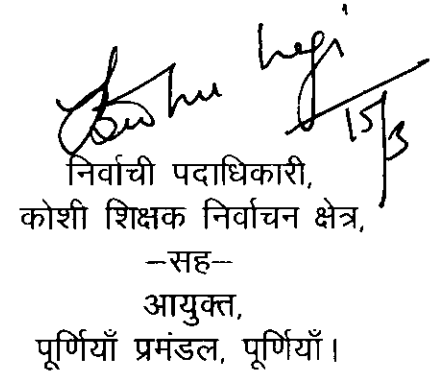 15/3
निर्वाची पदाधिकारी,
कोशी शिक्षक निर्वाचन क्षेत्र,
–सह–
आयुक्त,
पूर्णियाँ प्रमंडल, पूर्णियाँ।